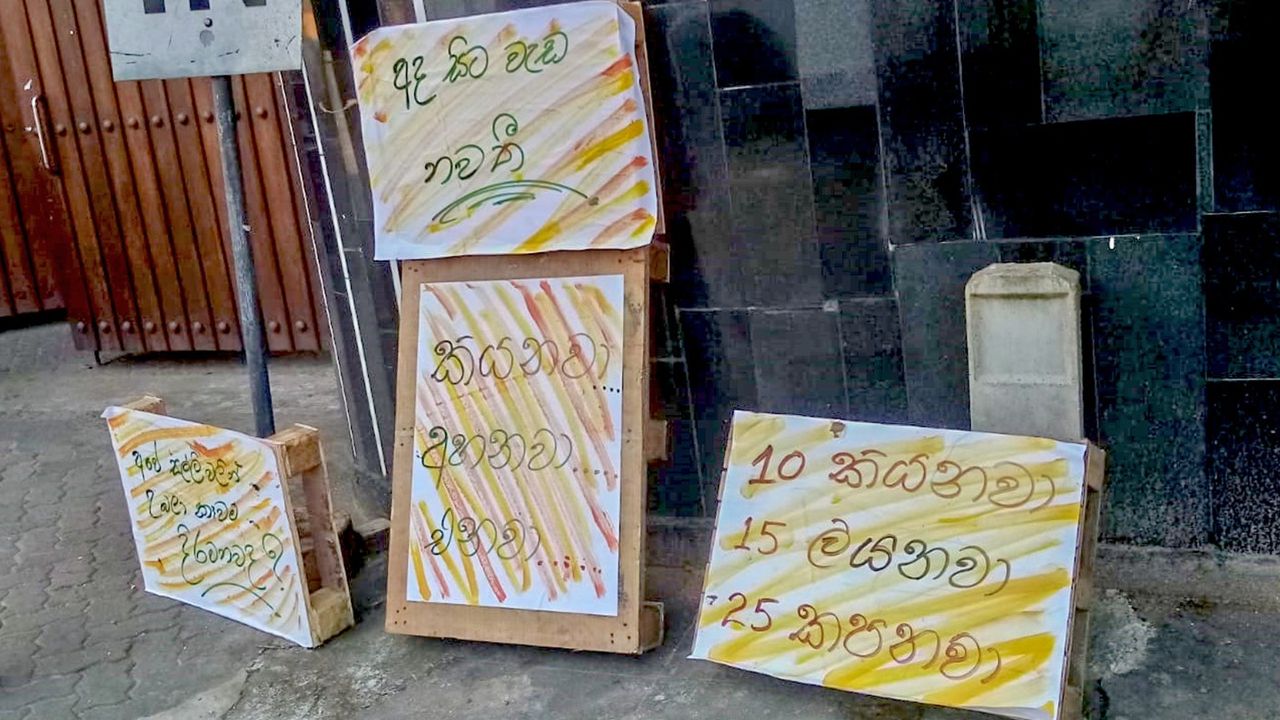 අද සිට වැඩ
නවතී
කියනවා...
අහනවා....
එනවා......
අපේ සල්ලි වලින්
උඹලා කාවම
දිරවනවද ?
10 කියනවා
15 ලියනවා
25 කපනවා